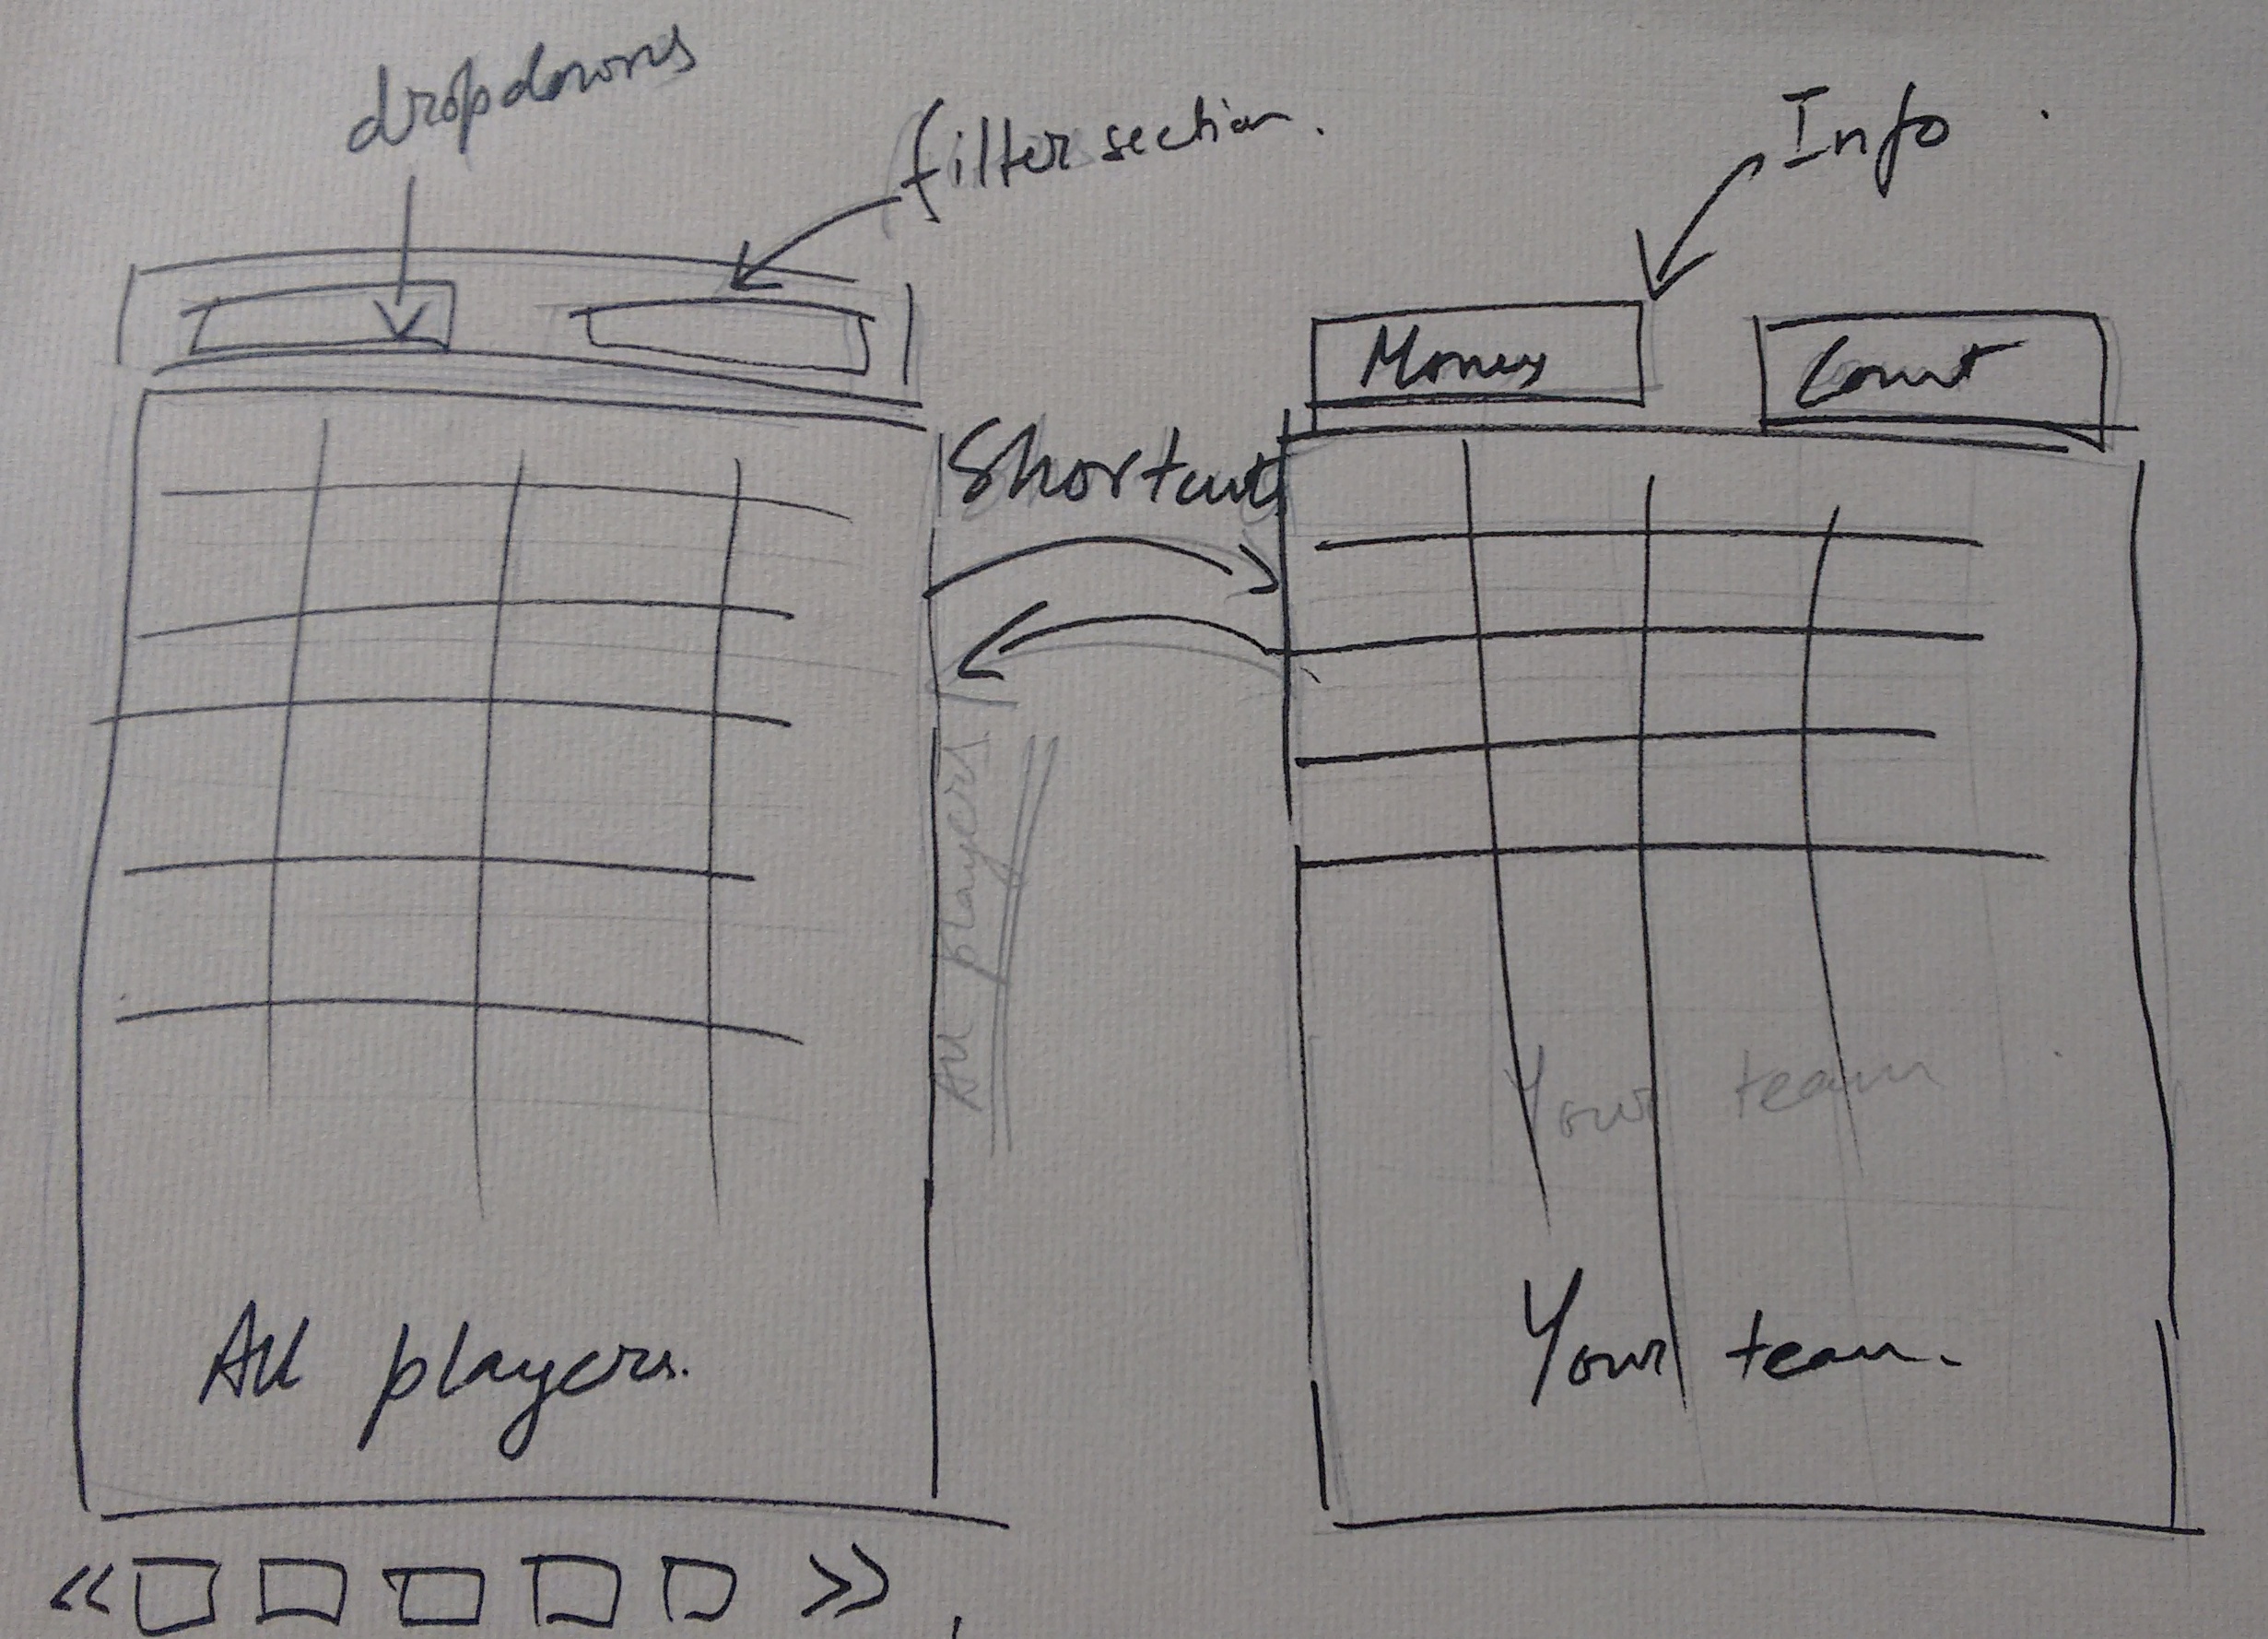 dropdowns
filter section.
Info
Money
Count
Shortcut
All players
Your team
All players.
Your team.
<<
>>